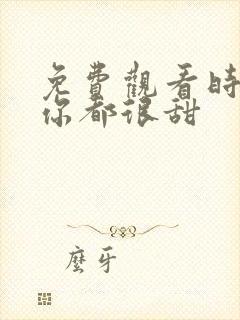 免費觀看時
你都很甜
麼牙